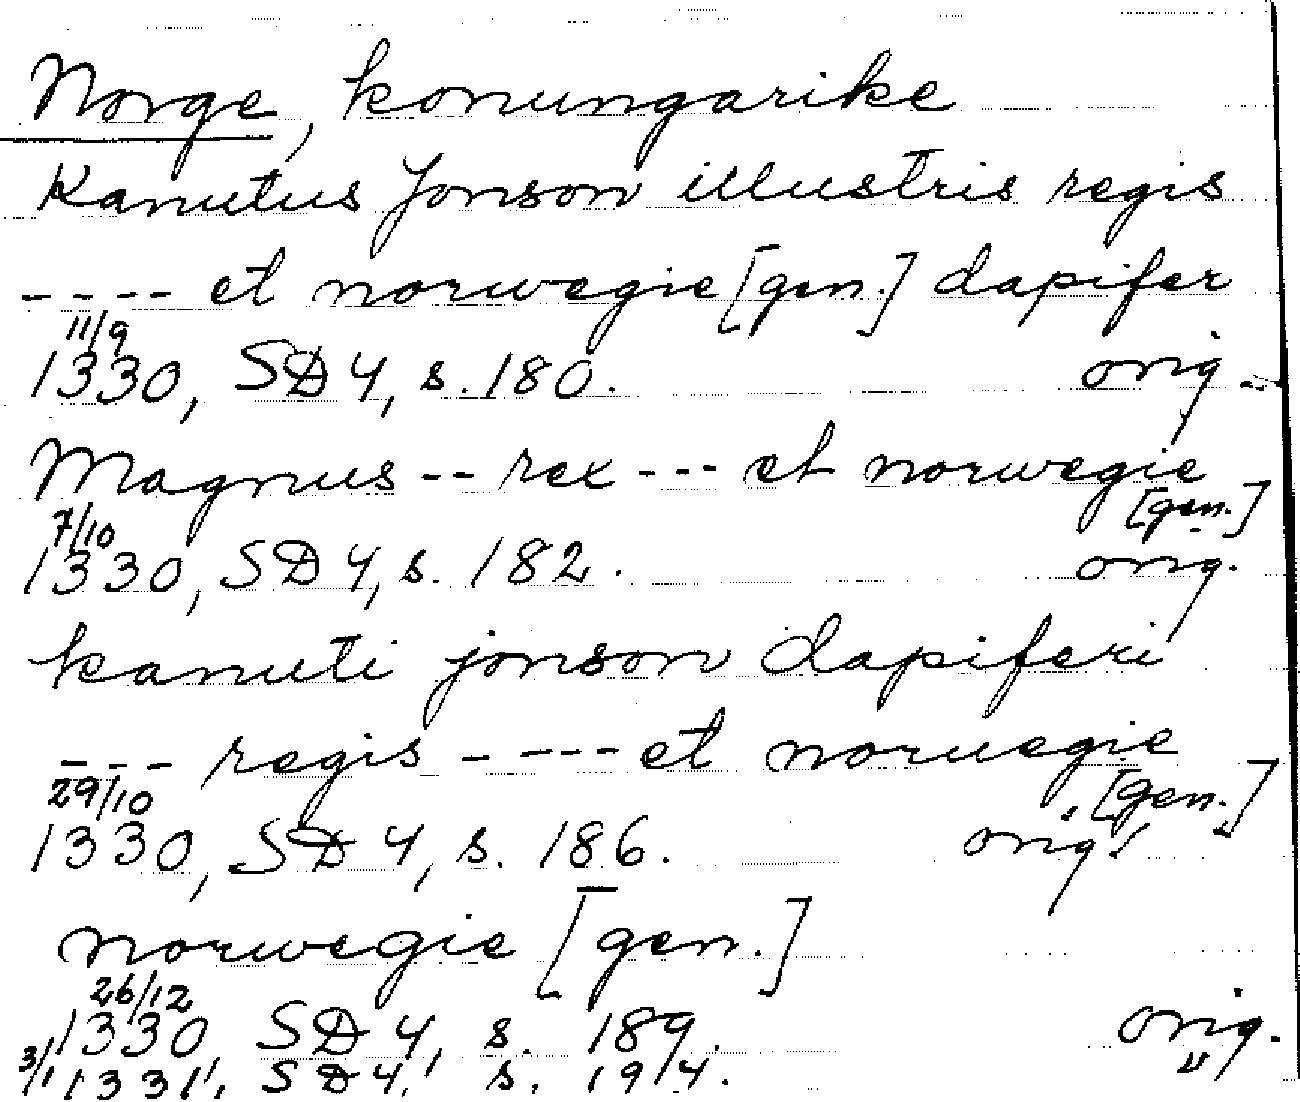 Norge, konungarike
Kanutus Jonson illustris regis
---- et norwegie [gen.] dapifer
11/9
1330, SD 4, s. 180. orig.
Magnus -- rex --- et norwegie
[gen.]
7/10
1330, SD 4, s. 182. orig.
kanuti jonson dapiferi
--- regis ---- et noruegie
[gen.]
29/10
1330, SD 4, s. 186. orig.
norwegie [gen.]
26/12
1330, SD 4, s. 189. orig.
3/1 1331, SD 4, s. 194. "